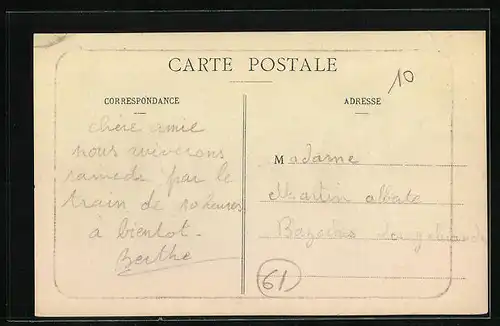 CARTE POSTALE
10
CORRESPONDANCE
ADRESSE
chère amie
nous arriverons
samedi par le
train de 10 heures
à bientot -
Berthe
Madame
Martin
61